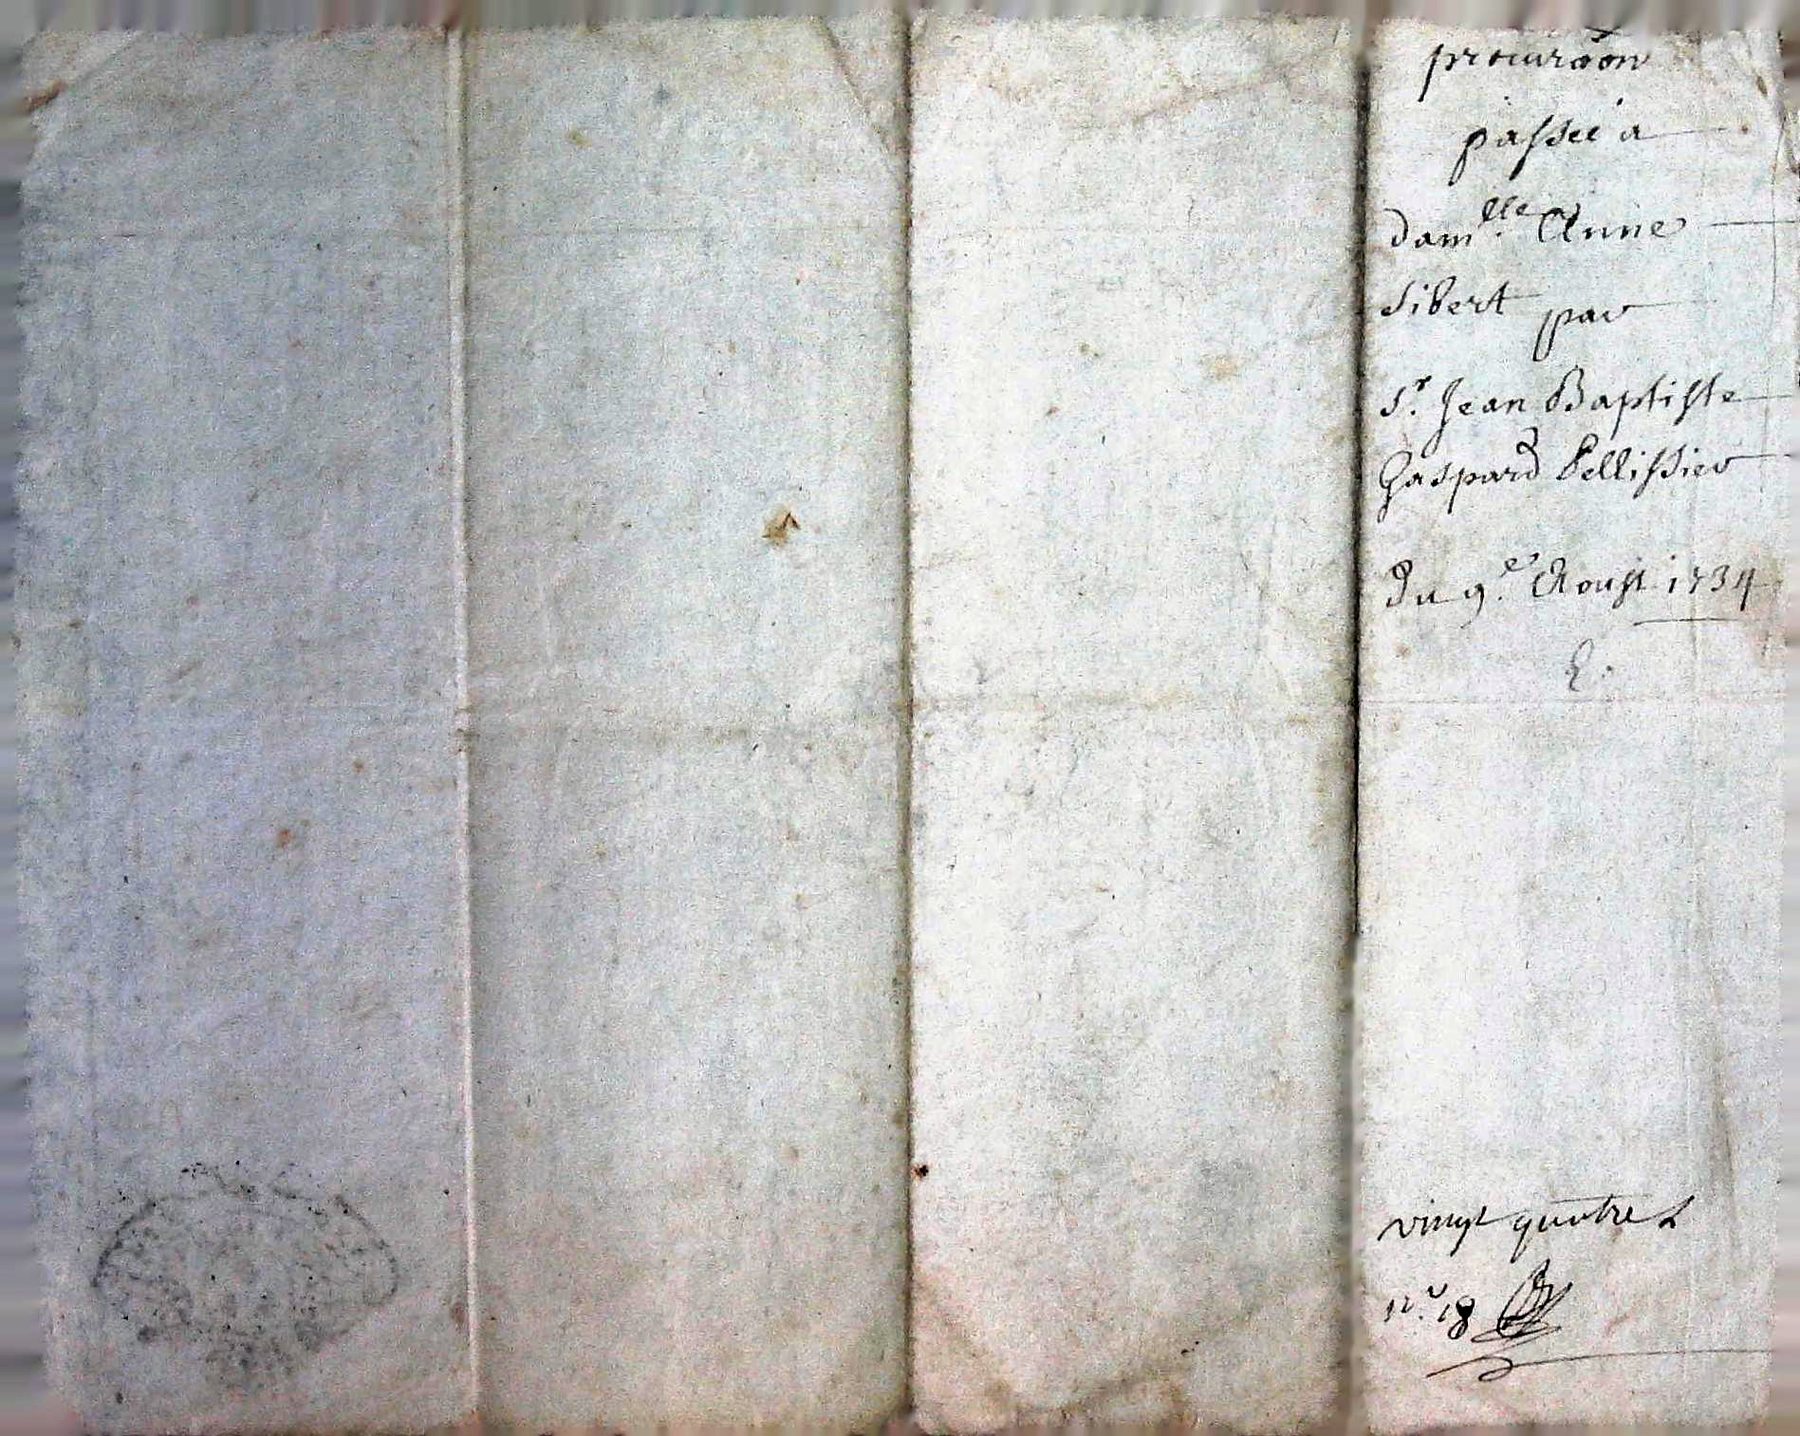 procuraõn
passée a
dam^lle. Anne
Sibert par
S^r. Jean Baptiste
Gaspard Pellissier
Du 9.^e Aoust 1734
E.
vingt quatre
n°. 18